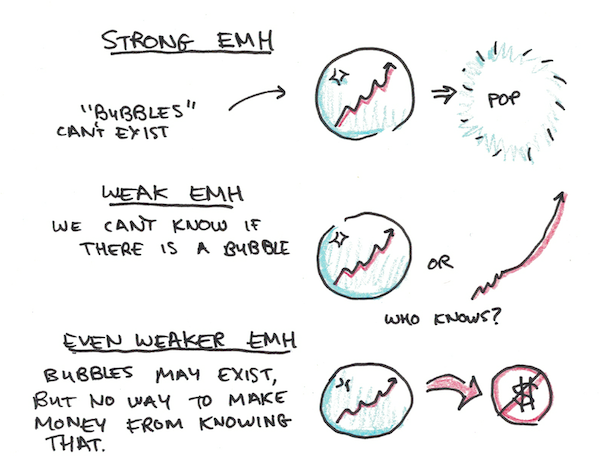 STRONG EMH
"BUBBLES"
CAN'T EXIST
POP
WEAK EMH
WE CAN'T KNOW IF
THERE IS A BUBBLE
OR
WHO KNOWS?
EVEN WEAKER EMH
BUBBLES MAY EXIST,
BUT NO WAY TO MAKE
MONEY FROM KNOWING
THAT.
$